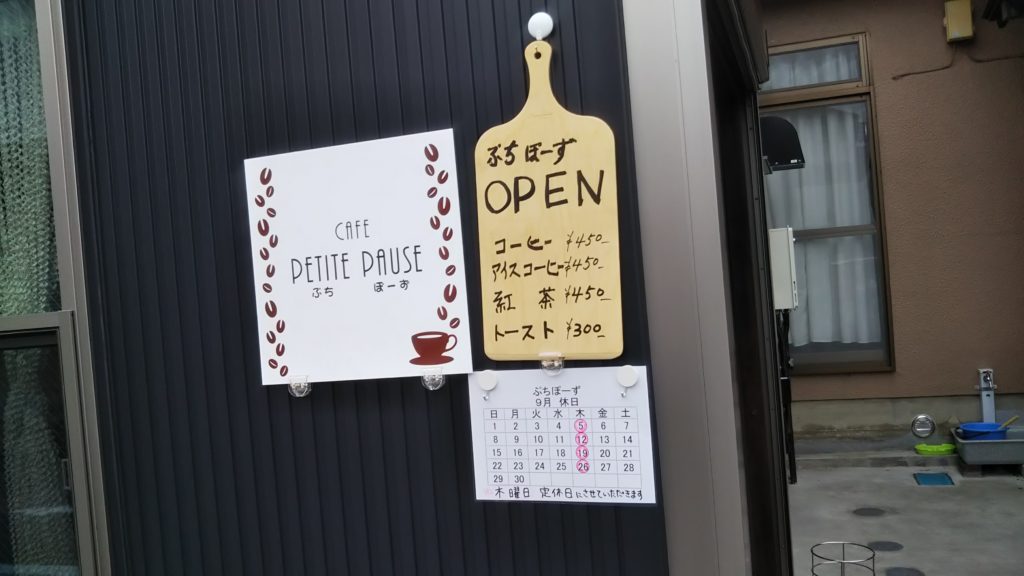 CAFE
PETITE PAUSE
ぷち ぽーず
ぷちぽーず
OPEN
コーヒー ¥450-
アイスコーヒー ¥450-
紅 茶 ¥450-
トースト ¥300-
ぷちぽーず
9月 休日
日 月 火 水 木 金 土
1 2 3 4 5 6 7
8 9 10 11 12 13 14
15 16 17 18 19 20 21
22 23 24 25 26 27 28
29 30
木曜日 定休日にさせていただきます